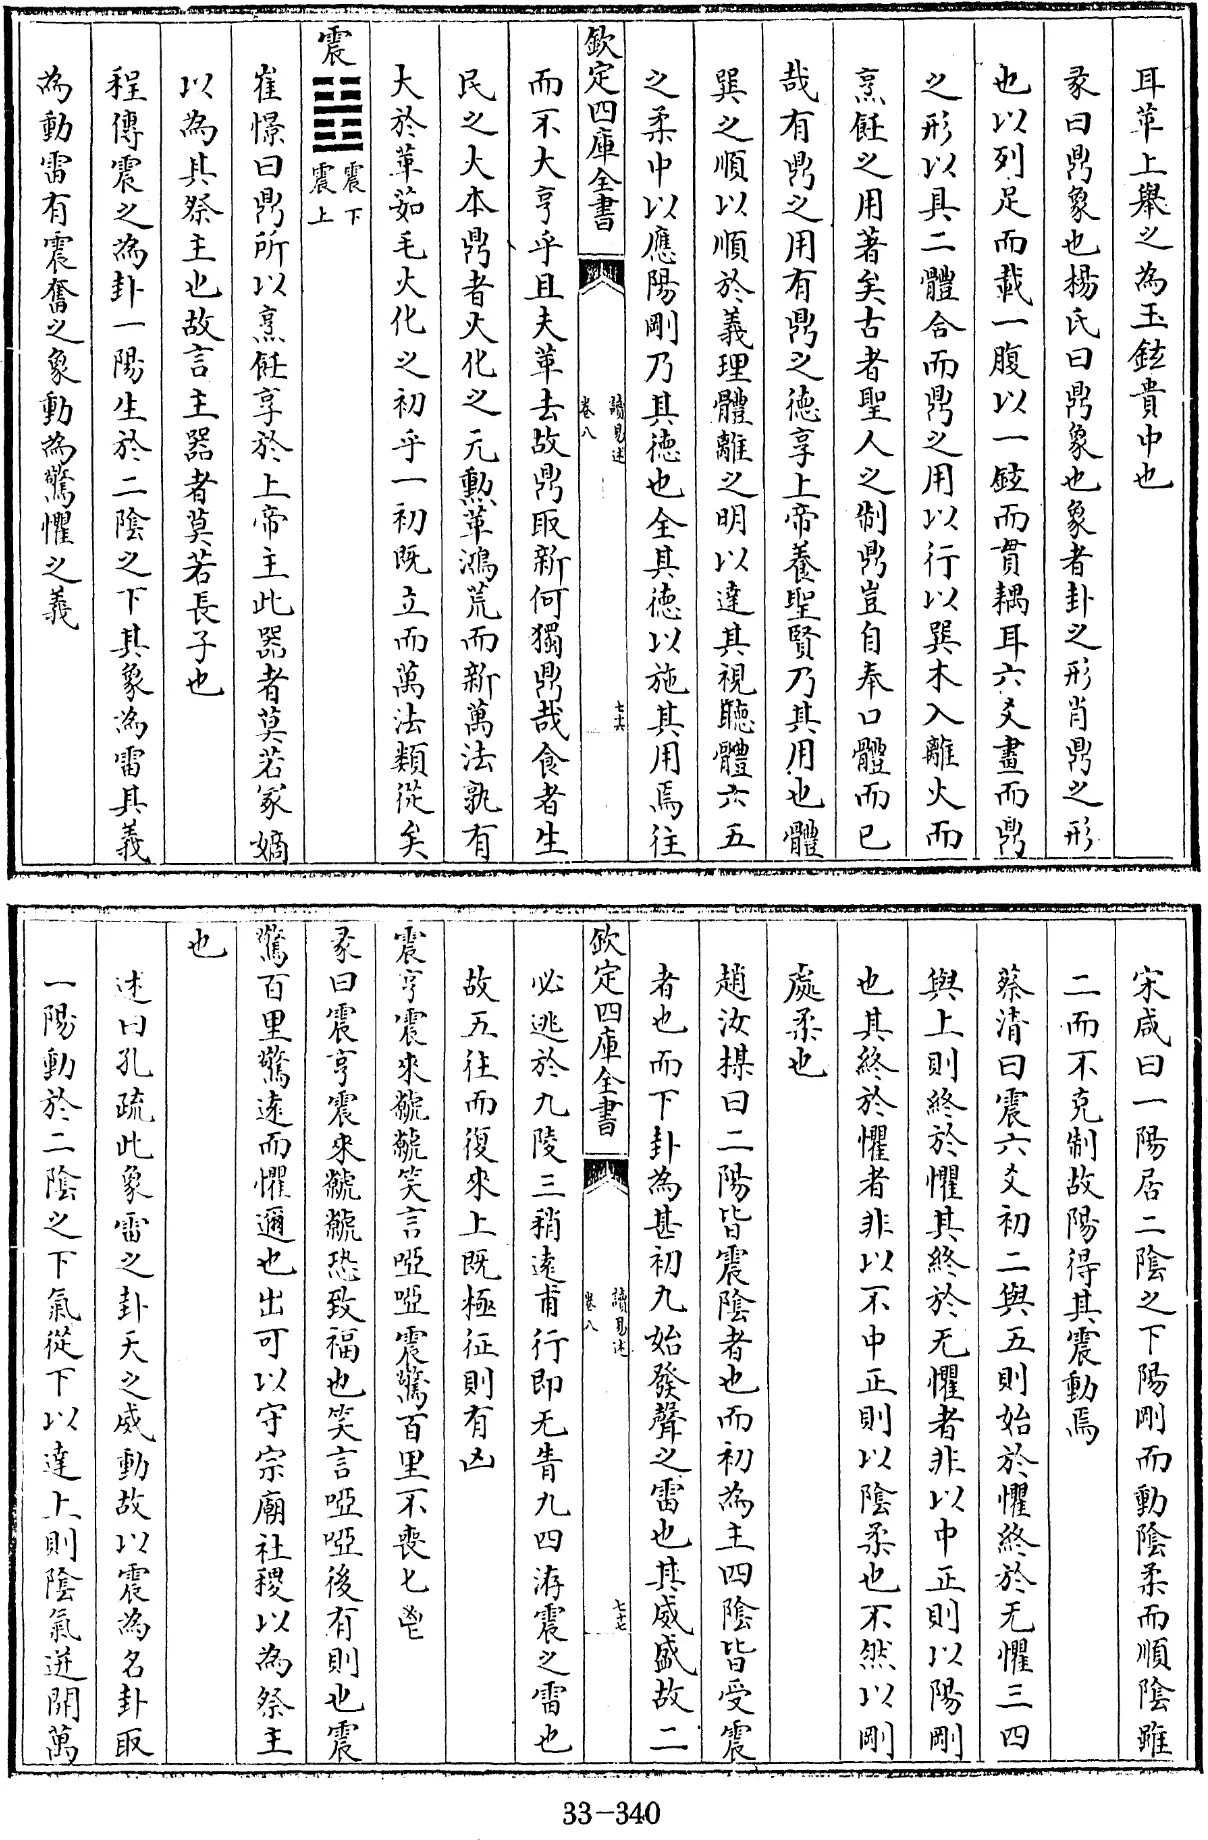 耳革上舉之為玉鉉貴中也
彖曰鼎象也楊氏曰鼎象也象者卦之形肖鼎之形
也以列足而載一腹以一鉉而貫耦耳六爻畫而鼎
之形以具二體合而鼎之用以行以巽木入離火而
烹飪之用著矣古者聖人之制鼎豈自奉口體而已
哉有鼎之用有鼎之德享上帝養聖賢乃其用也體
巽之順以順於義理體離之明以達其視聽體六五
之柔中以應陽剛乃其德也全其德以施其用焉往
欽定四庫全書
讀易述
卷八
七六
而不大亨乎且夫革去故鼎取新何獨鼎哉食者生
民之大本鼎者火化之元勲革鴻荒而新萬法孰有
大於革茹毛火化之初乎一初既立而萬法類從矣
震
震下
震上
崔憬曰鼎所以烹飪享於上帝主此器者莫若冢嫡
以為其祭主也故言主器者莫若長子也
程傳震之為卦一陽生於二陰之下其象為雷其義
為動雷有震奮之象動為驚懼之義
宋咸曰一陽居二陰之下陽剛而動陰柔而順陰雖
二而不克制故陽得其震動焉
蔡清曰震六爻初二與五則始於懼終於无懼三四
與上則終於懼其終於无懼者非以中正則以陽剛
也其終於懼者非以不中正則以陰柔也不然以剛
處柔也
趙汝楳曰二陽皆震陰者也而初為主四陰皆受震
者也而下卦為甚初九始發聲之雷也其威盛故二
欽定四庫全書
讀易述
卷八
七七
必逃於九陵三稍遠甫行即无眚九四洊震之雷也
故五往而復來上既極征則有凶
震亨震來虩虩笑言啞啞震驚百里不喪匕鬯
彖曰震亨震來虩虩恐致福也笑言啞啞後有則也震
驚百里驚遠而懼邇也出可以守宗廟社稷以為祭主
也
述曰孔疏此象雷之卦天之威動故以震為名卦取
一陽動於二陰之下氣從下以達上則陰氣迸開萬
33-340